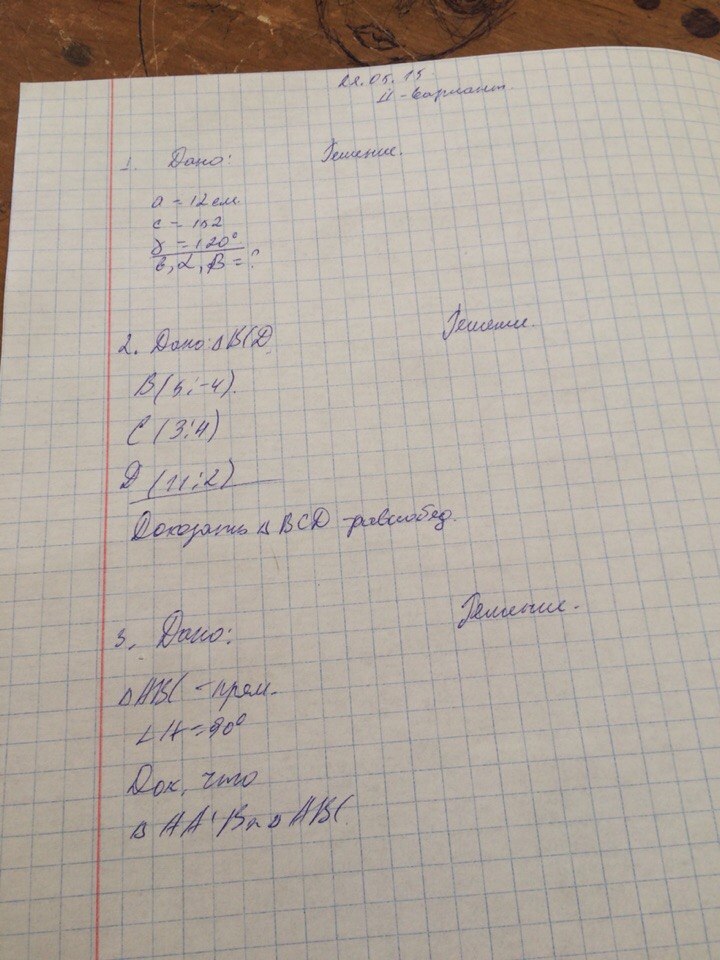 22.05.15
II - вариант.
1. Дано: Решение.
a = 12 см
c = 152
γ = 120°
в, α, β = ?
2. Дано: △ BCD Решение.
B (5; -4).
C (3; 4)
D (11; 2)
Доказать △ BCD - равнобед.
3. Дано: Решение.
△ ABC - прям.
∠A = 90°
Док, что
△ AA'B ~ △ ABC.